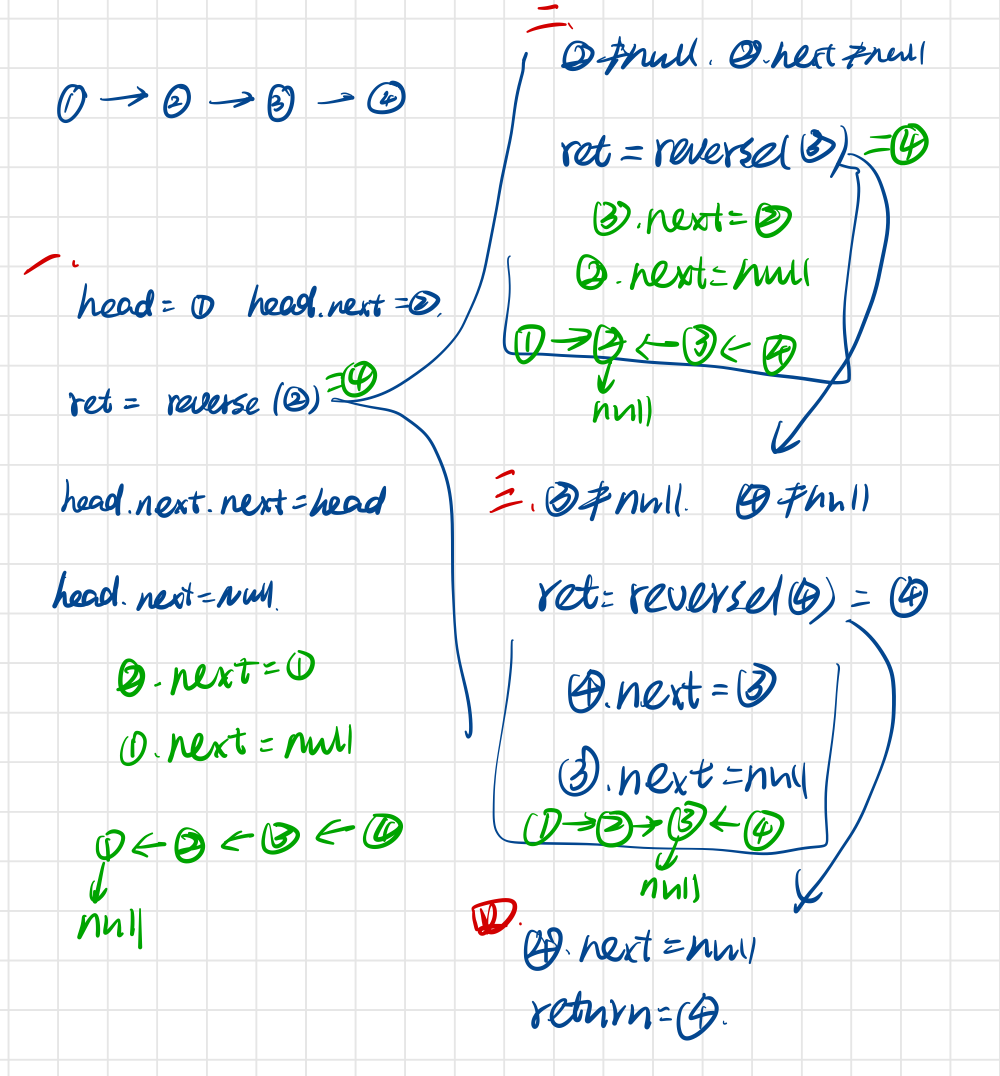 ① → ② → ③ → ④
一.
head = ① head.next = ②.
ret = reverse (②) = ④
head.next.next = head
head.next = null.
②.next = ①
①.next = null
① ← ② ← ③ ← ④
↓
null
二
②≠null. ②.next≠null
ret = reverse(③) = ④
③.next = ②
②.next = null
① → ② ← ③ ← ④
↓
null
三. ③≠null. ④≠null
ret = reverse(④) = ④
④.next = ③
③.next = null
① → ② → ③ ← ④
↓
null
四.
④.next = null
return = ④.